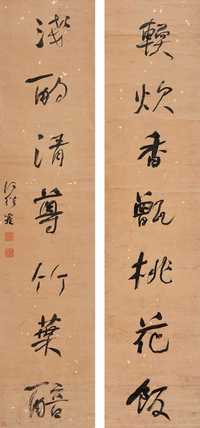 軟炊香甑桃花飯
淺酌清尊竹葉醅
何維